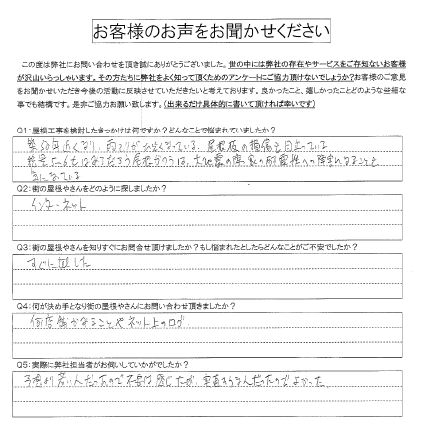 お客様のお声をお聞かせください
この度は弊社にお問い合わせを頂き誠にありがとうございました。世の中には弊社の存在やサービスをご存知ないお客様
が沢山いらっしゃいます。その方たちに弊社をよく知って頂くためのアンケートにご協力頂けないでしょうか？お客様のご意見
をお聞かせいただき今後の活動に反映させていただきたいと考えております。良かったこと、嬉しかったことどのような些細な
事でも結構です。是非ご協力お願い致します。（出来るだけ具体的に書いて頂ければ幸いです）
Q1：屋根工事を検討したきっかけは何ですか？どんなことで悩まれていましたか？
年近くなり、雨どりが
気になっている
Q2：街の屋根やさんをどのように探しましたか？
インターネット
Q3：街の屋根やさんを知りすぐにお問合せ頂けましたか？もし悩まれたとしたらどんなことがご不安でしたか？
すぐに した
Q4：何が決め手となり街の屋根やさんにお問い合わせ頂きましたか？
何店舗かなることやネット上のログ
Q5：実際に弊社担当者がお伺いしていかがでしたか？
予想より若い人だったので不安は感じたが、 な人だったのでよかった